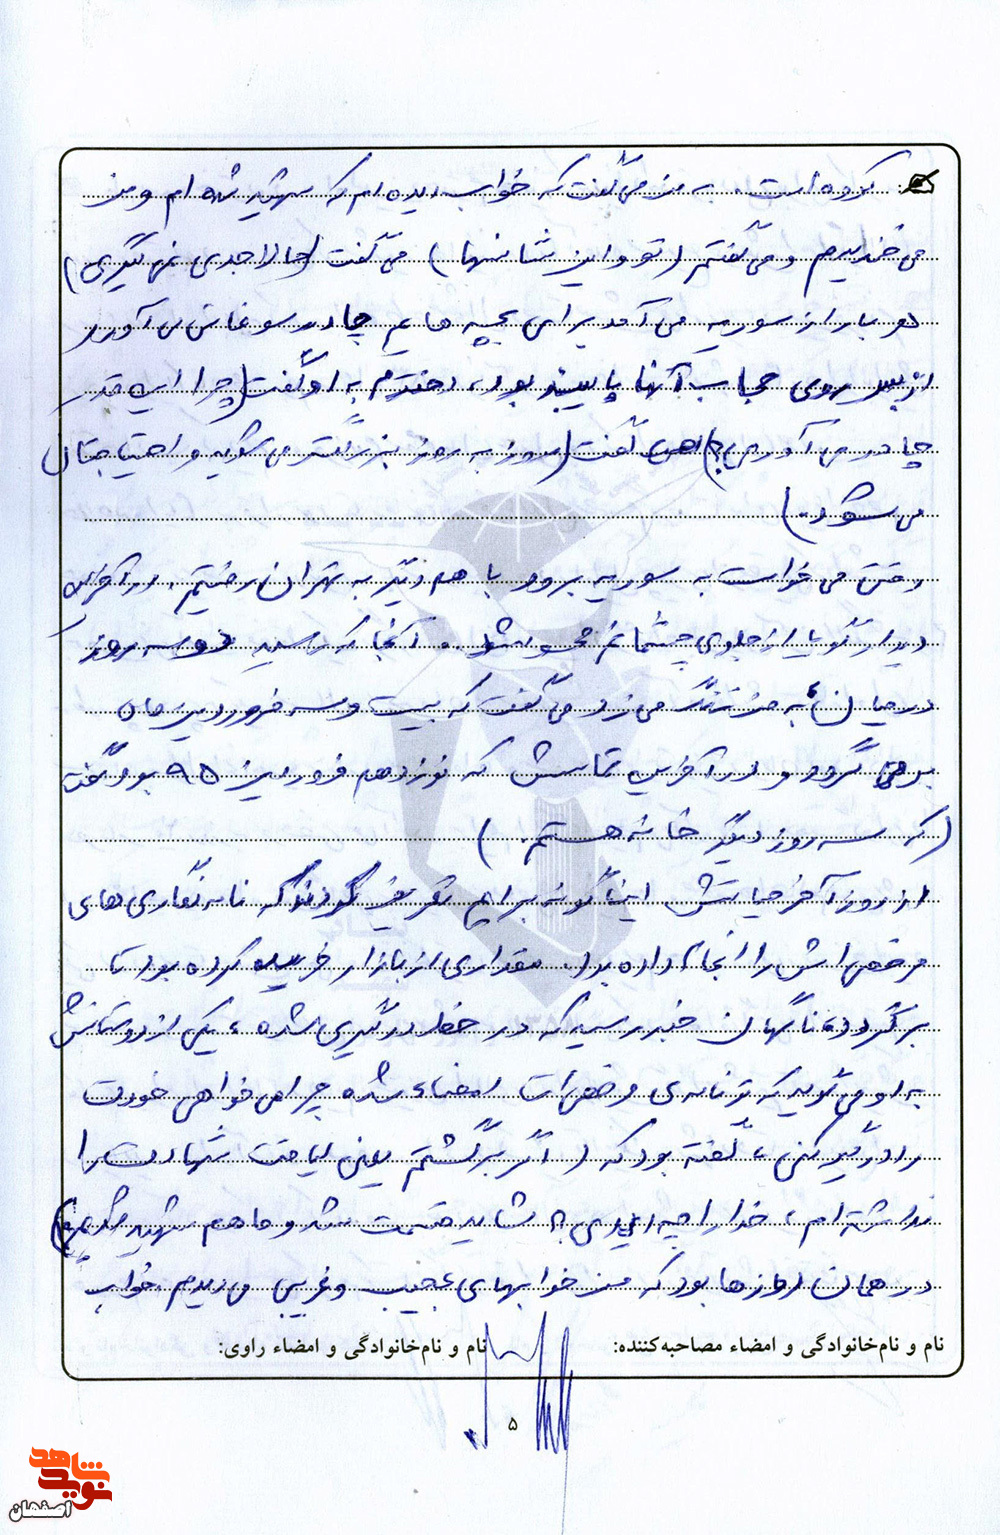 کرده است. به من می‌گفت که خواب دیده ام که شهید شده ام و من
می خندیدم و می گفتم (تو و این شانسها) می گفت (حالا جدی نمی گیری)
هر بار از سوریه می آمد برای بچه هایم چادر سوغاتی می آورد
از بس روی حجاب آنها پایبند بود، دخترم به او گفت (چرا این قدر
چادر می آوری؟) گفت (روز به روز بزرگتر می شوید و احتیاجتان
می شود.)
وقتی می خواست به سوریه برود با همدیگر به تهران رفتیم. در آخرین
دیدار گویا از جلوی چشمانم محو شد. و آنجا که رسید دو سه روز
در میان به من زنگ می زد و می گفت که بیست و سه فروردین ماه
بر می گردد و در آخرین تماسش که نوزدهم فروردین ۹۵ بود گفت
(که سه روز دیگر خانه هستم.)
از روز آخر حیاتش اینگونه برایم تعریف کردند که نامه نگاری های
مرخصی اش را انجام داده بود. مقداری از بازار خرید کرده بود تا
برگردد، ناگهان خبر رسید که در خط درگیری شده، یکی از دوستانش
به او می گوید که تو نامه ی مرخصی ات امضاء شده چرا می خواهی خودت
را درگیر کنی، گفته بود که (اگر برگشتم یعنی لیاقت شهادت را
نداشته ام، خدا را چه دیدی شاید قسمت شد و ما هم شهید شدیم)
در همان روزها بود که من خوابهای عجیب و غریبی می دیدم. خواب
نام و نام‌خانوادگی و امضاء مصاحبه‌کننده: نام و نام‌خانوادگی و امضاء راوی:
۵
نوید شاهد
اصفهان